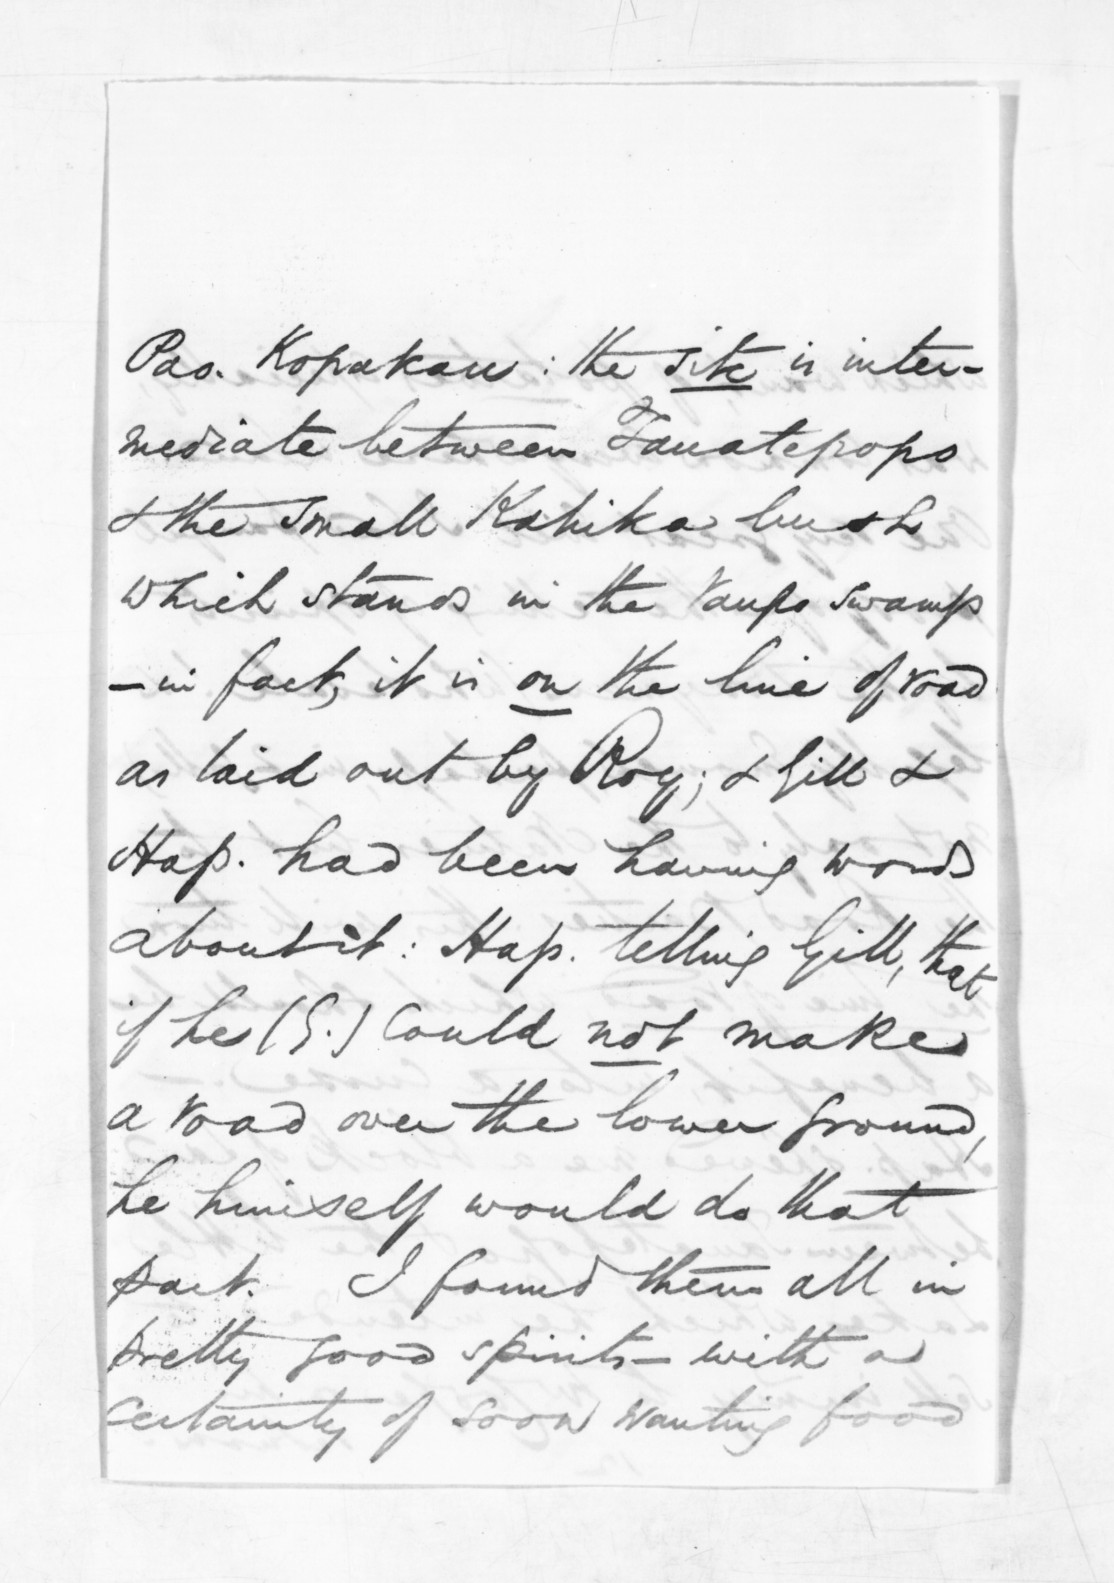 Pao. Kopakau: the site is inter-
mediate between Tauatepopo
& the small Kahika bush
which stands in the raupo swamp
— in fact, it is on the line of road
as laid out by Roy; & Gill &
Hap. had been having words
about it: Hap. telling Gill, that
if he (G.) could not make
a road over the lower ground,
he himself would do that
part. I found them all in
pretty good spirits — with a
certainty of soon wanting food